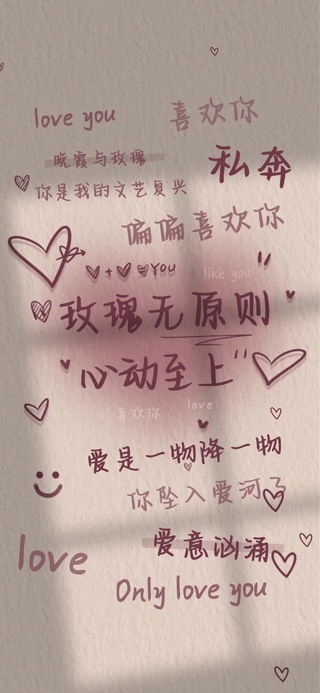 love you
喜欢你
晚霞与玫瑰
私奔
你是我的文艺复兴
偏偏喜欢你
YOU
like you
玫瑰无原则
"心动至上"
只喜欢你
love
爱是一物降一物
你坠入爱河了
爱意汹涌
love
Only love you